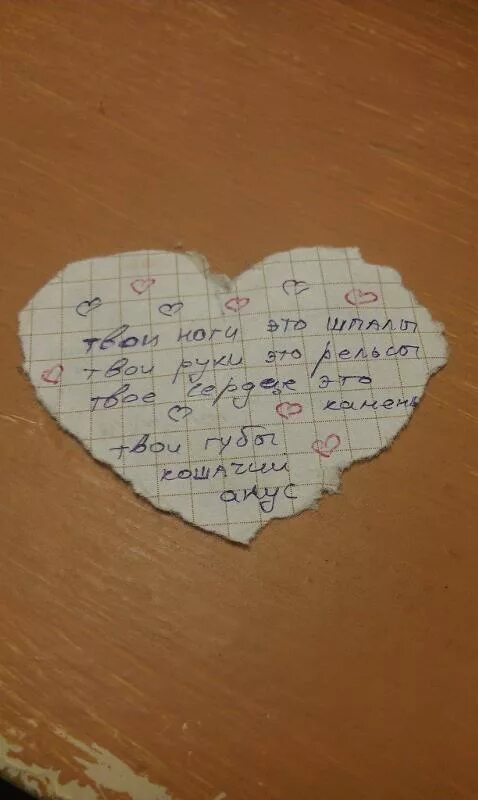 твои ноги это шпалы
твои руки это рельсы
твое сердце это
камень
твои губы
кошачии
анус